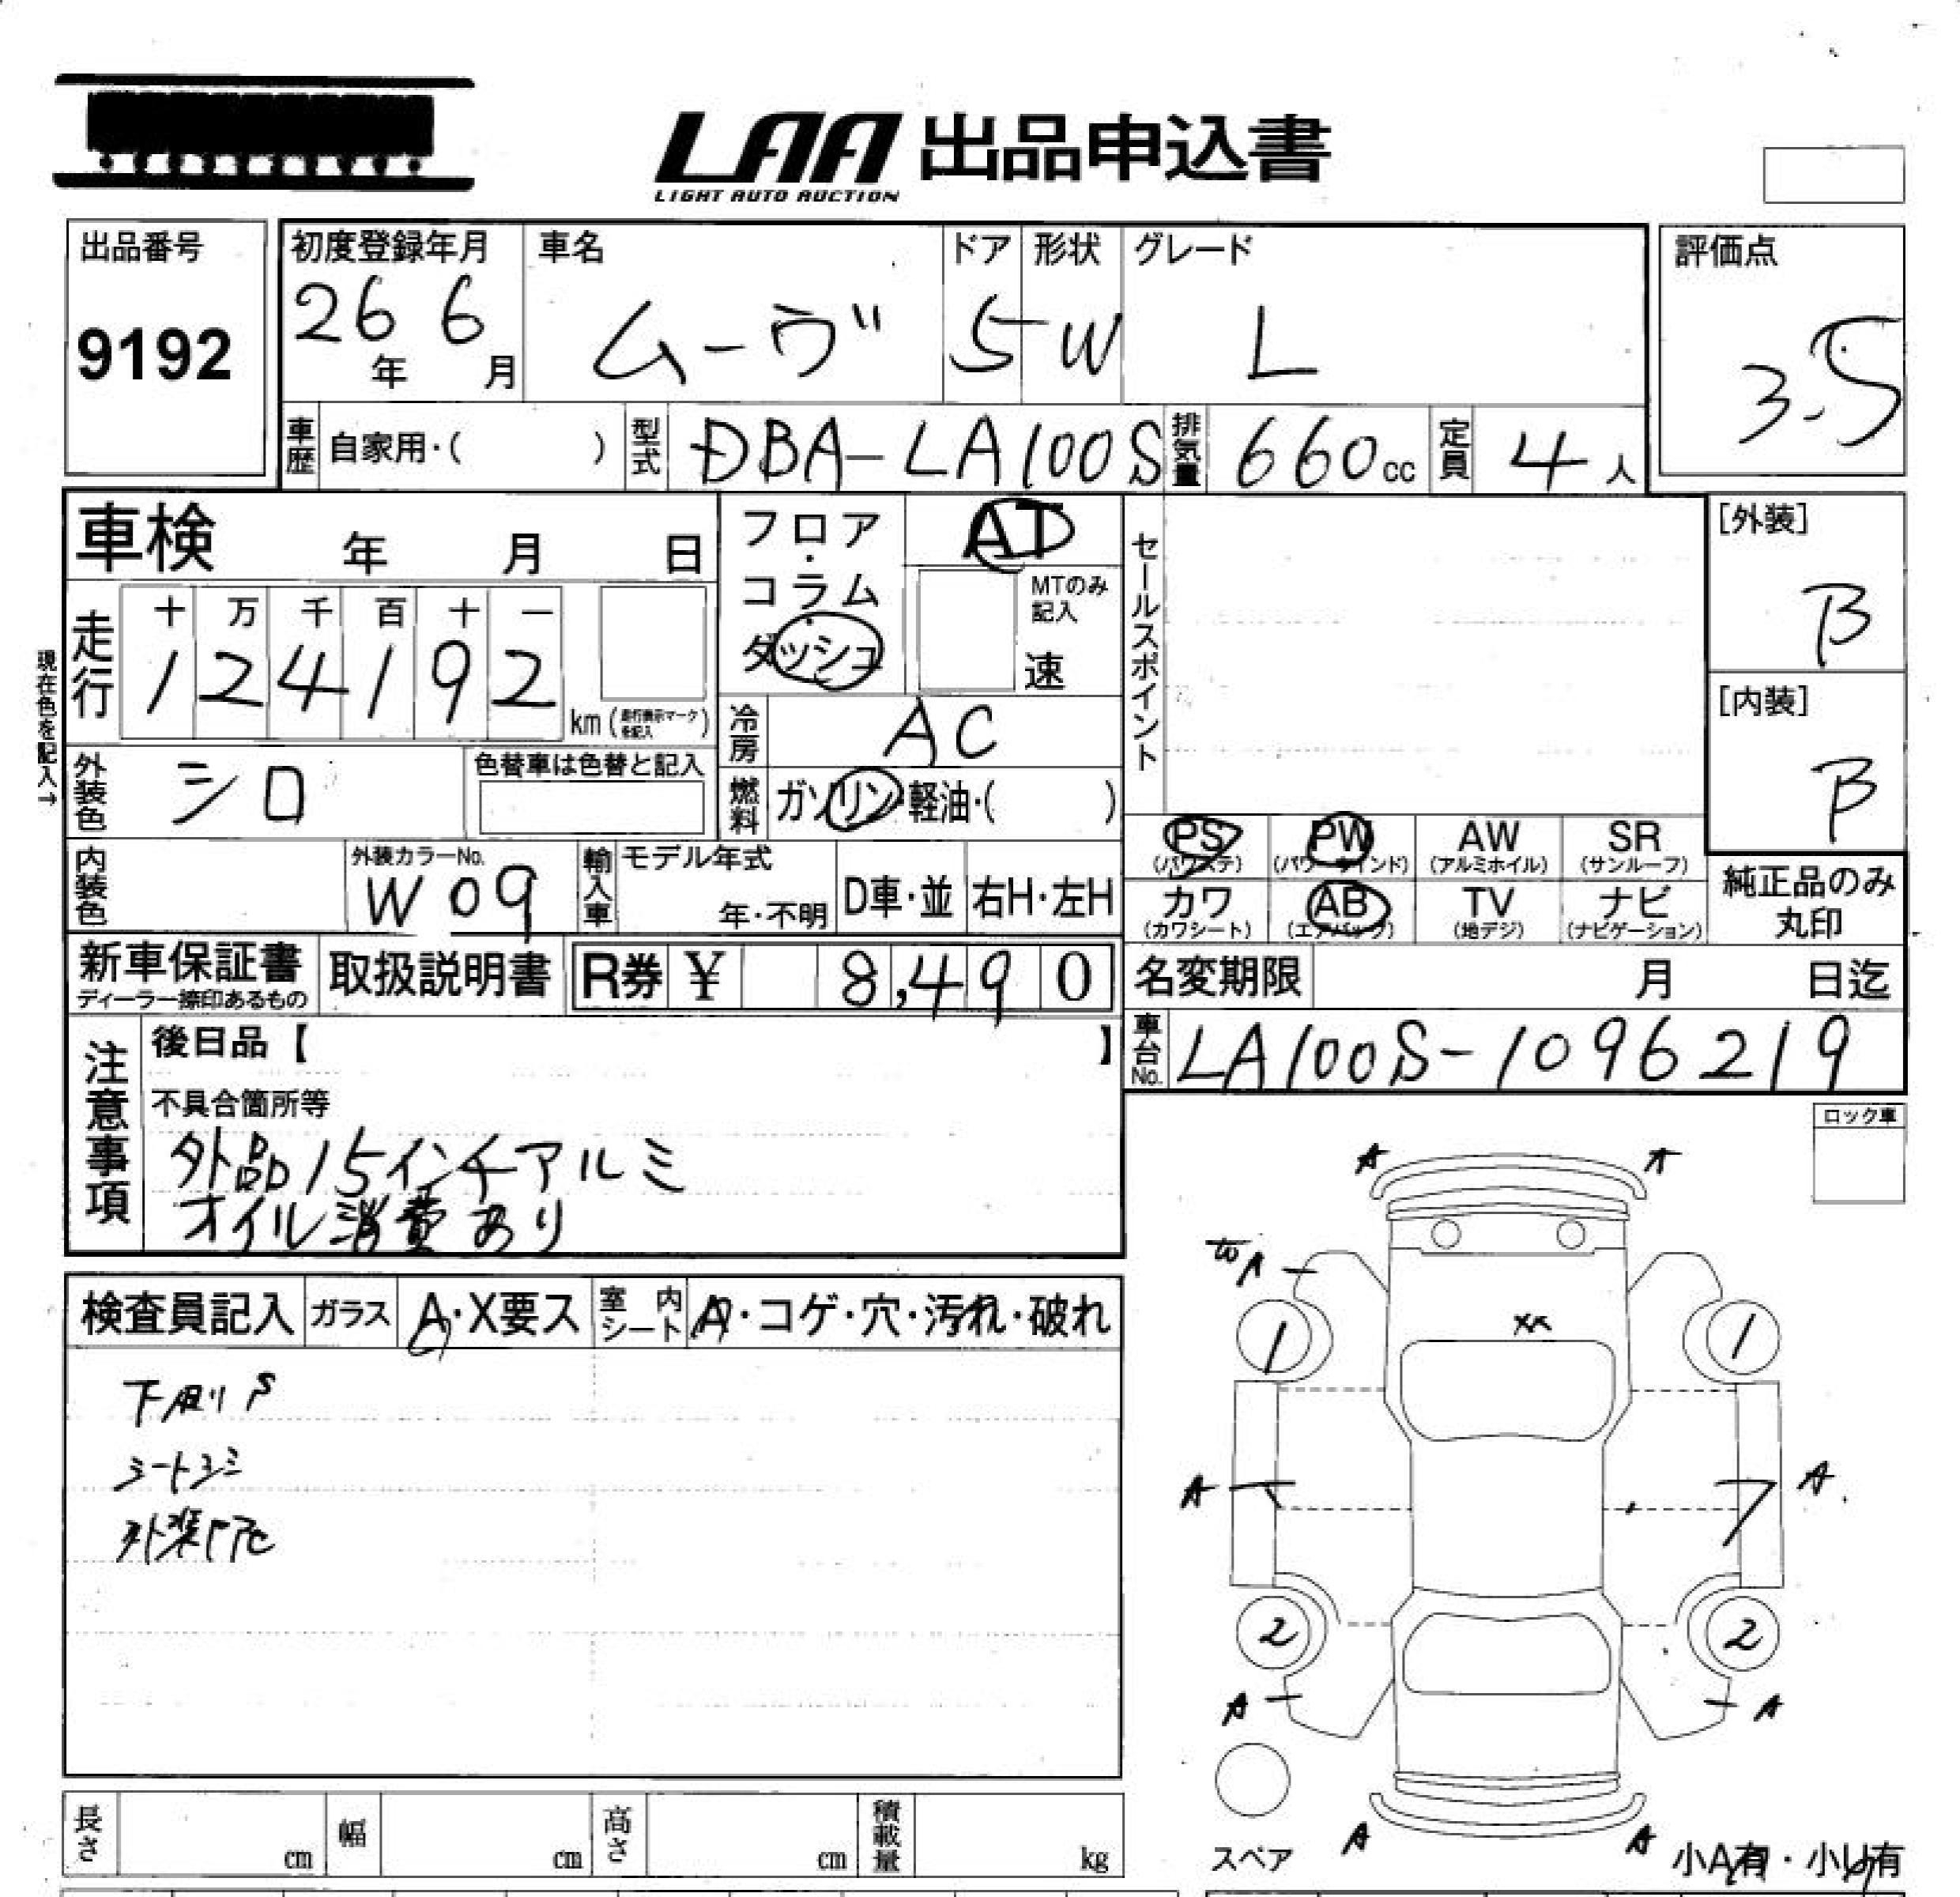 LAA 出品申込書
LIGHT AUTO AUCTION
出品番号
9192
初度登録年月
26年 6月
車名
ムーヴ
ドア
5
形状
W
グレード
L
評価点
3.5
車歴 自家用・( )
型式 DBA-LA100S
排気量 660cc
定員 4人
車検 年 月 日
フロア・コラム・ダッシュ
AT
MTのみ記入
速
セールスポイント
[外装]
B
[内装]
B
現在色を記入→
走行
十 万 千 百 十 一
1 2 4 1 9 2 km (走行表示マークを記入)
冷房 AC
外装色 シロ
色替車は色替と記入
燃料 ガソリン・軽油・( )
PS (パワステ) PW (パワーウインド) AW (アルミホイル) SR (サンルーフ)
カワ (カワシート) AB (エアバッグ) TV (地デジ) ナビ (ナビゲーション)
純正品のみ丸印
内装色
外装カラーNo.
W09
輸入車 モデル年式 年・不明 D車・並 右H・左H
新車保証書
ディーラー捺印あるもの
取扱説明書
R券 ¥ 8,490
名変期限 月 日迄
車台No. LA100S-1096219
注意事項
後日品【 】
不具合箇所等
外品15インチアルミ
オイル消費あり
ロック車
検査員記入 ガラス A・X要ス 室内シート A・コゲ・穴・汚れ・破れ
下廻りS
シートシミ
A A
A
XX
1 1
A A
2 2
A A
A A
スペア
小A有・小U有
長さ cm 幅 cm 高さ cm 積載量 kg